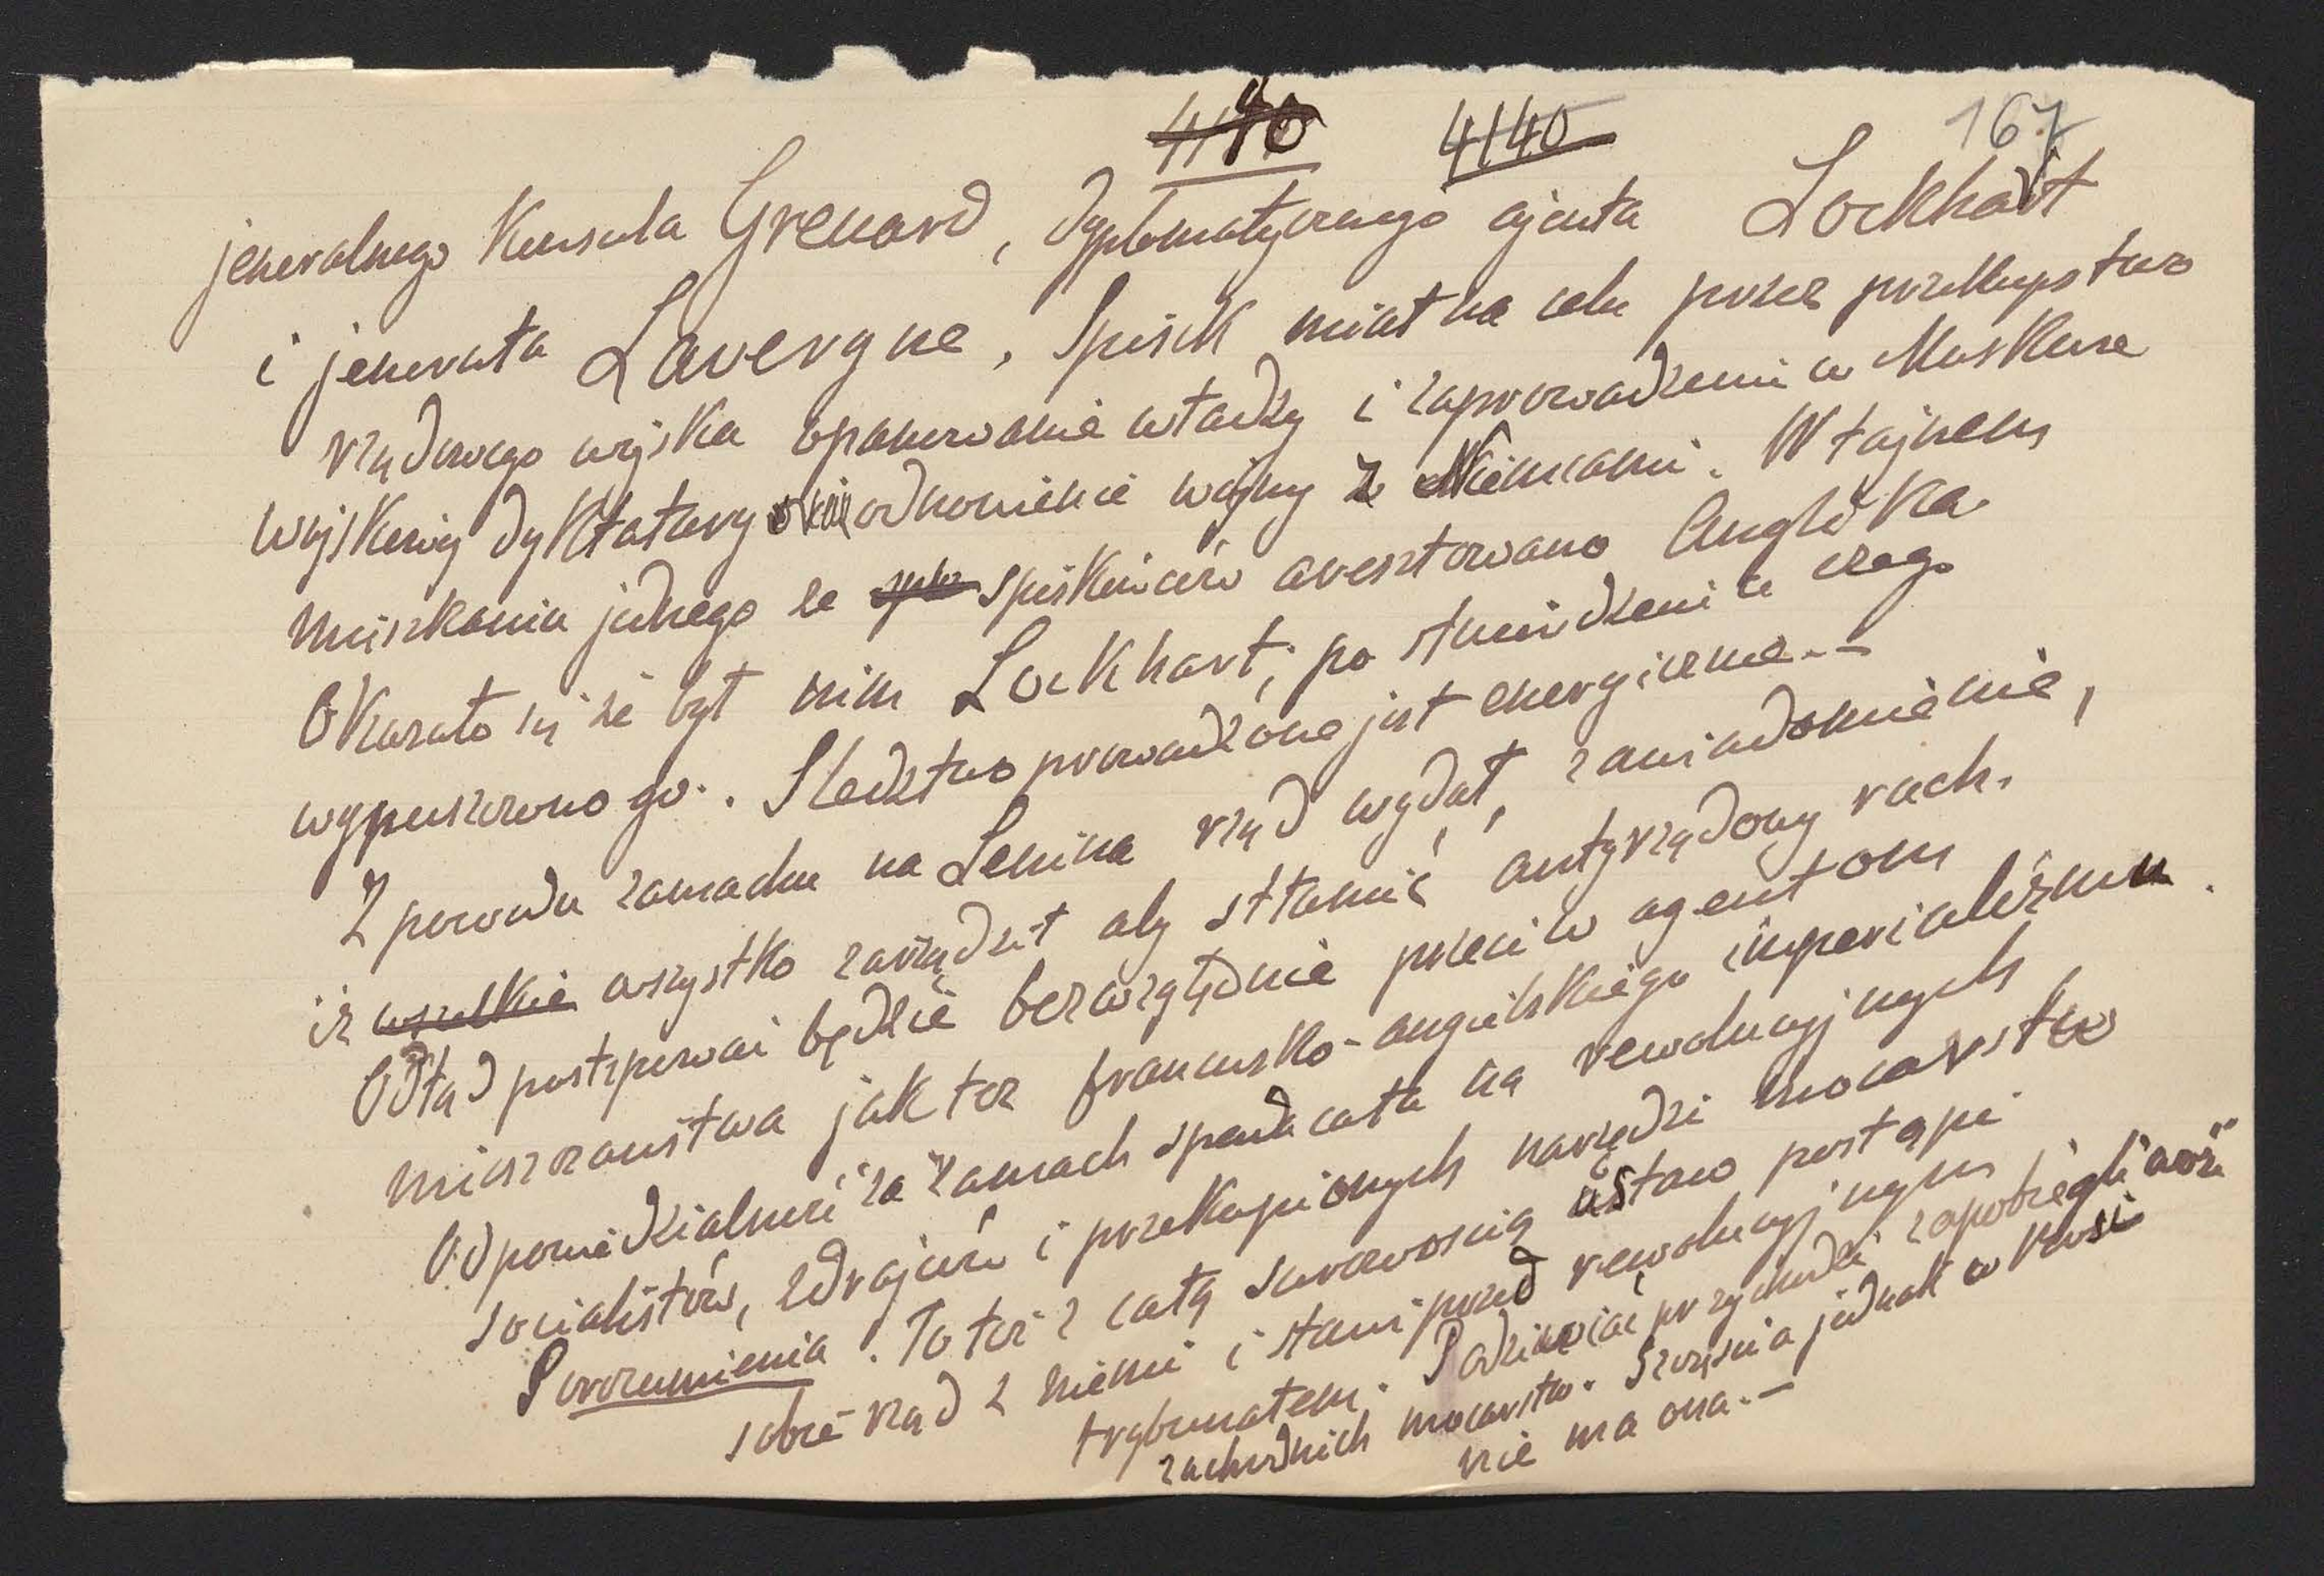 4140
167
jeneralnego Konsula Grenard, dyplomatycznego ajenta Lockhart
i jenerała Lavergne. Spisek miał na celu przez przekupstwo
rządowego wojska opanowanie władzy i zaprowadzenie w Moskwie
wojskowej dyktatury odnowienie wojny z Niemcami. W tajnem
mieszkaniu jednego ze spiskowców aresztowano Anglika
Okazało się że był nim Lockhart; po stwierdzeniu czego
wypuszczono go. Śledztwo prowadzone jest energiczne.-
Z powodu zamachu na Lenina rząd wydał, zawiadomienie,
iż wszelkie wszystko zarządził aby stłamić antyrządowy ruch.
Odtąd postępować będzie bezwzględnie przeciw agentom
mieszczaństwa jak też francusko-angielskiego imperializmu.
Odpowiedzialność za zamach spada cała na rewolucyjnych
socialistów, zdrajców i przekupionych narzędzi mocarstw
Porozumienia. To też z całą surowością ustaw postąpi
sobie rząd z niemi i stawi przed rewolucyjnym
trybunałem. Podziwiać przychodzi zapobiegliwość
zachodnich mocarstw. Szczęścia jednak w Rosji
nie ma ona.-